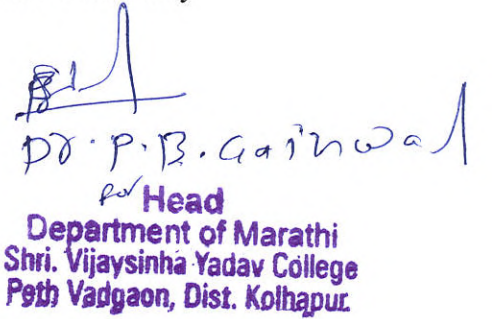 Dr. P. B. Gaikwad
for Head
Department of Marathi
Shri. Vijaysinha Yadav College
Peth Vadgaon, Dist. Kolhapur.